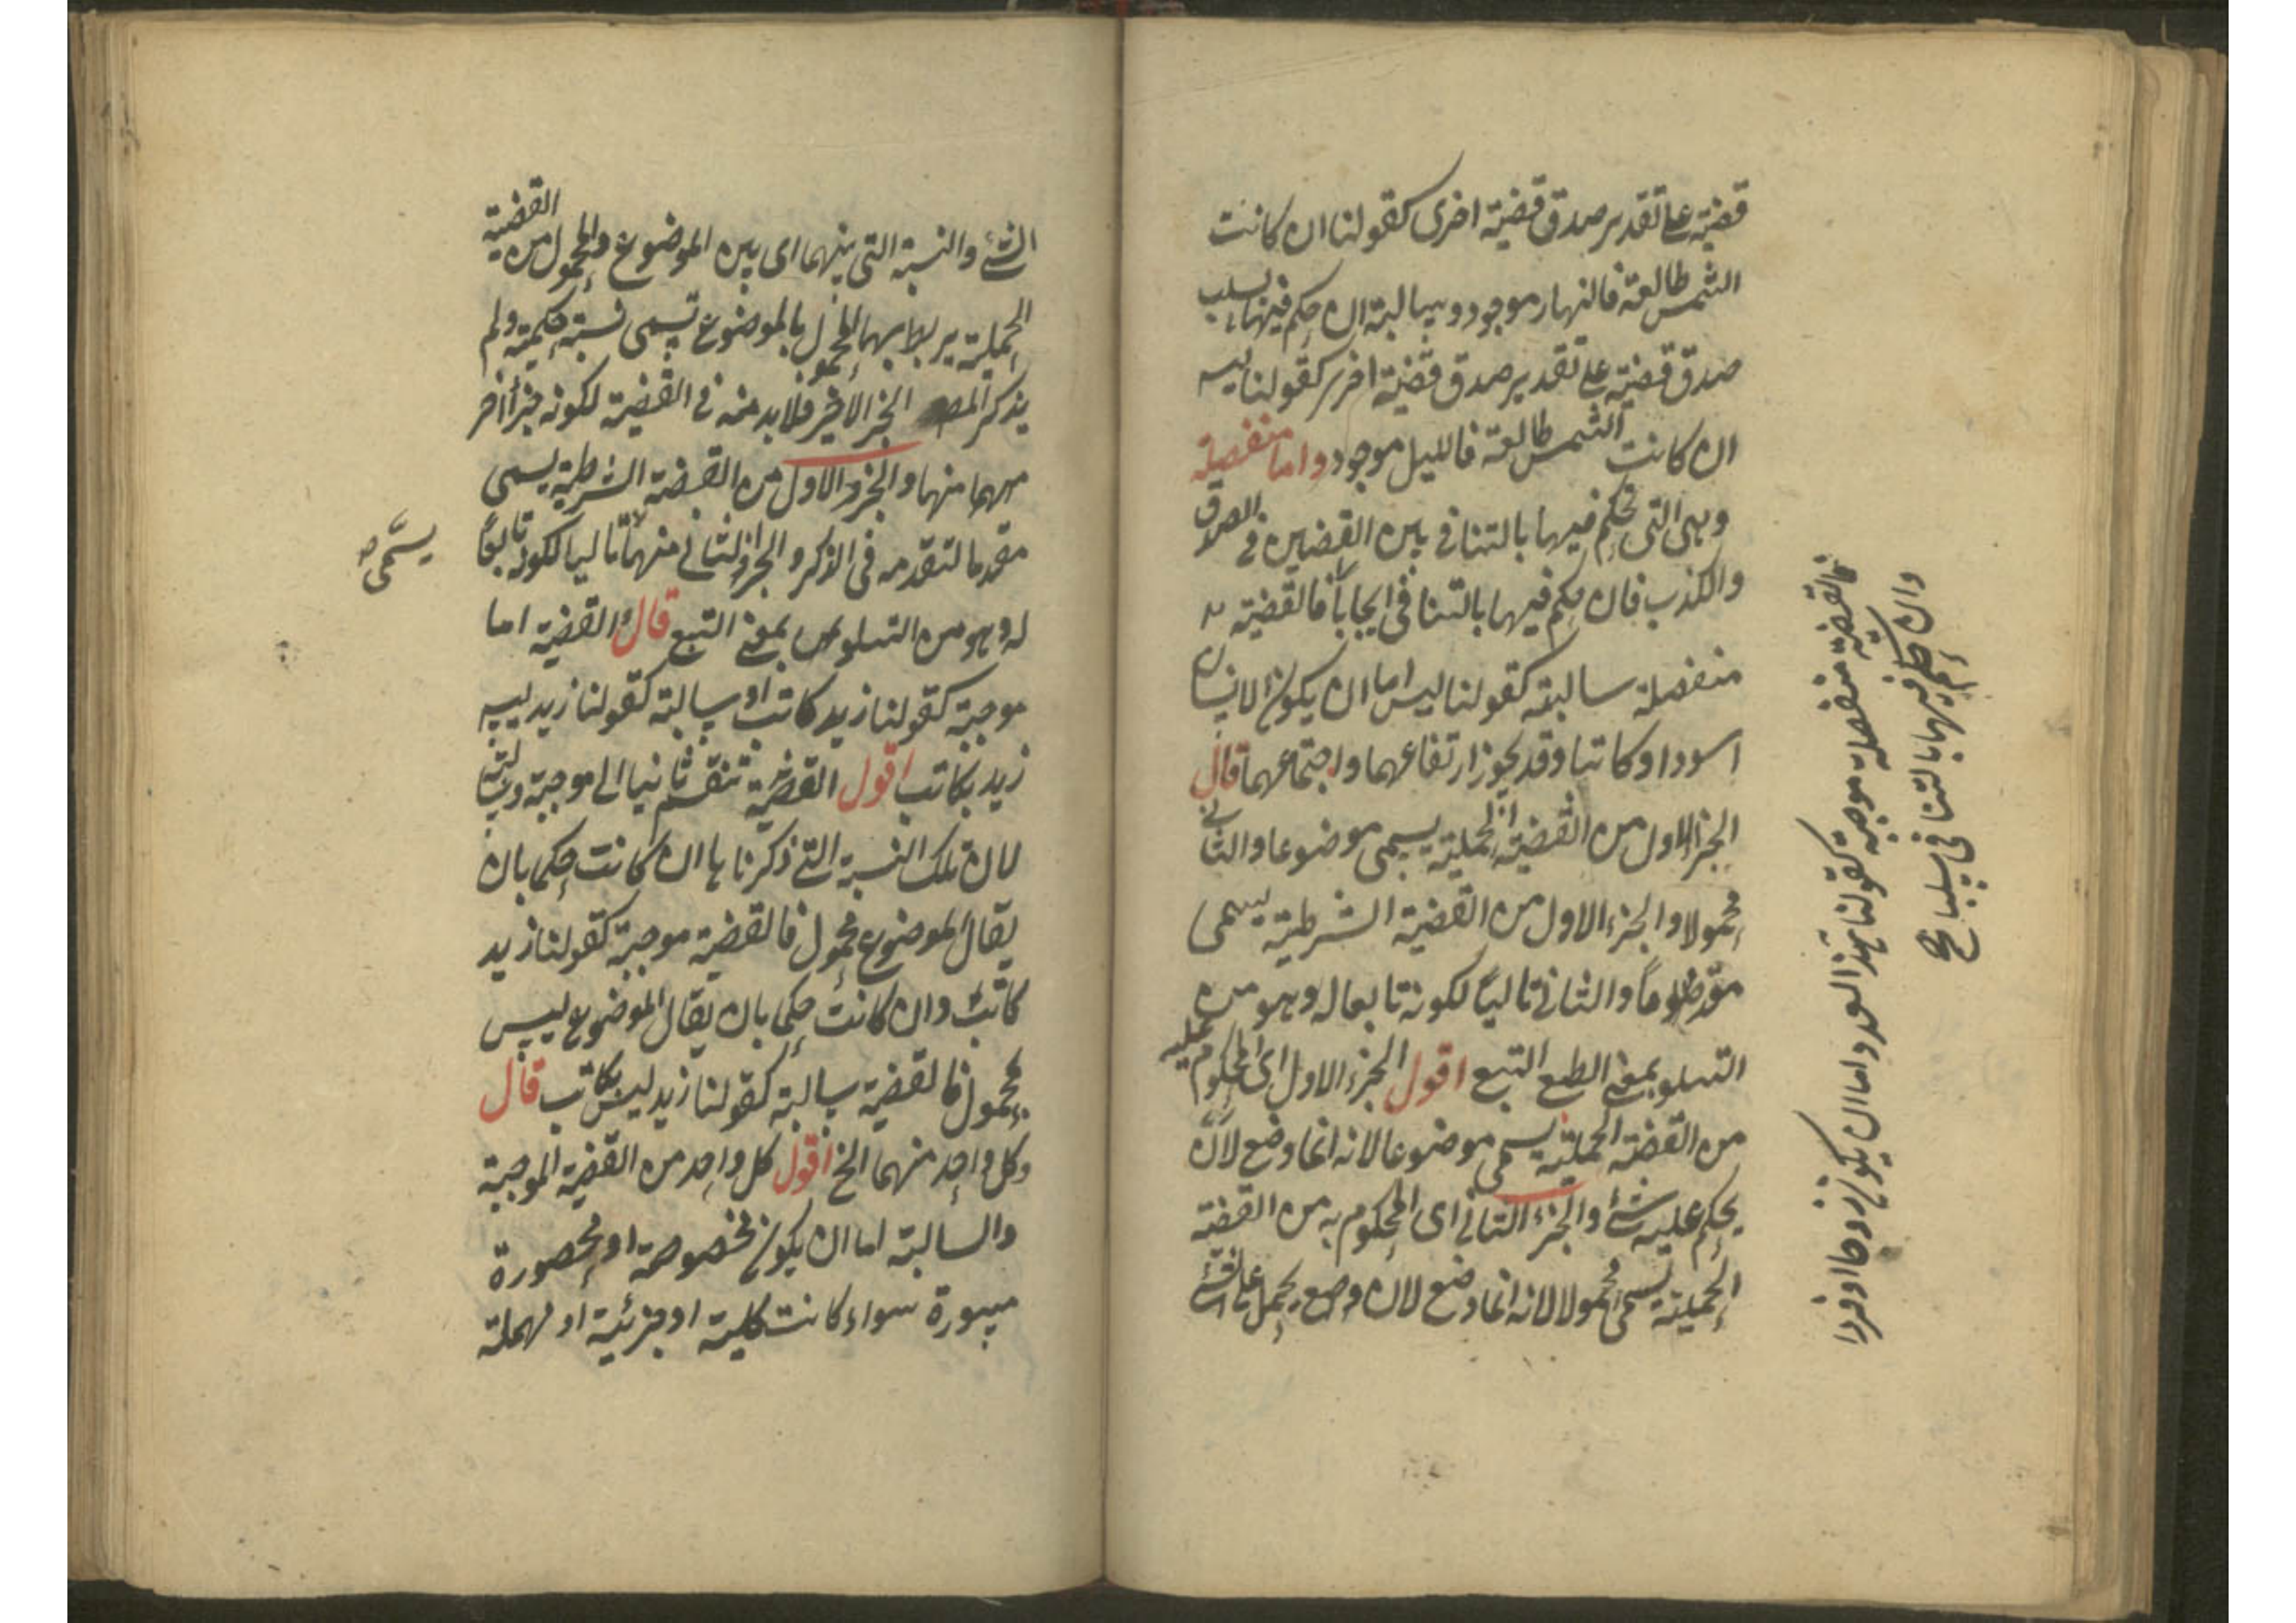 قضية على تقدير صدق قضية اخرى كقولنا ان كانت
الشمس طالعة فالنهار موجود وسالبة ان حكم فيها بسلب
صدق قضية على تقدير صدق قضية اخرى كقولنا ليس
ان كانت الشمس طالعة فالليل موجود واما منفصلة
وهى التى يحكم فيها بالتنافى بين القضيتين فى الصدق
والكذب فان حكم فيها بالتنافى ايجابا فالقضية
منفصلة سالبة كقولنا ليس اما ان يكون الانسان
اسودا وكاتبا وقد يجوز ارتفاعهما واجتماعهما قال
الجزء الاول من القضية الحملية يسمى موضوعا والثانى
محمولا والجزء الاول من القضية الشرطية يسمى
والثانى تاليا لكونه تابعا له وهو من
التلو بمعنى التبع اقول الجزء الاول اى المحكوم عليه
من القضية الحملية يسمى موضوعا لانه انما وضع لان
يحكم عليه شئ والجزء الثانى اى المحكوم به من القضية
الحملية يسمى محمولا لانه انما وضع لان يحمل على الشئ
فالقضية منفصلة موجبة كقولنا هذا العدد اما ان يكون زوجا او فردا
وان حكم فيها بالتنافى سلبا صح
الشئ والنسبة التى بينهما اى بين الموضوع والمحمول من القضية
الحملية يربط بها المحمول بالموضوع تسمى نسبة حكمية ولم
يذكر المص الجزء الاخير فلا بد منه فى القضية لكونه جزأ اخر
منهما والجزء الاول من القضية الشرطية يسمى
مقدما لتقدمه فى الذكر والجزء الثانى منهما تاليا لكونه تابعا
يسمى صح
له وهو من التلو بمعنى التبع قال القضية اما
موجبة كقولنا زيد كاتب او سالبة كقولنا زيد ليس
زيد بكاتب اقول القضية تنقسم ثانيا الى موجبة وسالبة
لان تلك النسبة التى ذكرناها ان كانت حكما بان
يقال الموضوع محمول فالقضية موجبة كقولنا زيد
كاتب وان كانت حكما بان يقال الموضوع ليس
بمحمول فالقضية سالبة كقولنا زيد ليس بكاتب قال
وكل واحد منهما الخ اقول كل واحد من القضية الموجبة
والسالبة اما ان يكون مخصوصة او محصورة
مسورة سواء كانت كلية او جزئية او مهملة